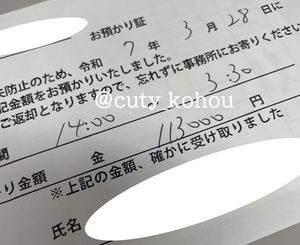 お預かり証
防止のため、令和 7 年 3 月 28 日に
記金額をお預かりいたしました。
ご返却となりますので、忘れずに事務所にお寄りください
@cuty_kohou
3.30
間 14:00
り金額 金 113000 円
※上記の金額、確かに受け取りました
氏名